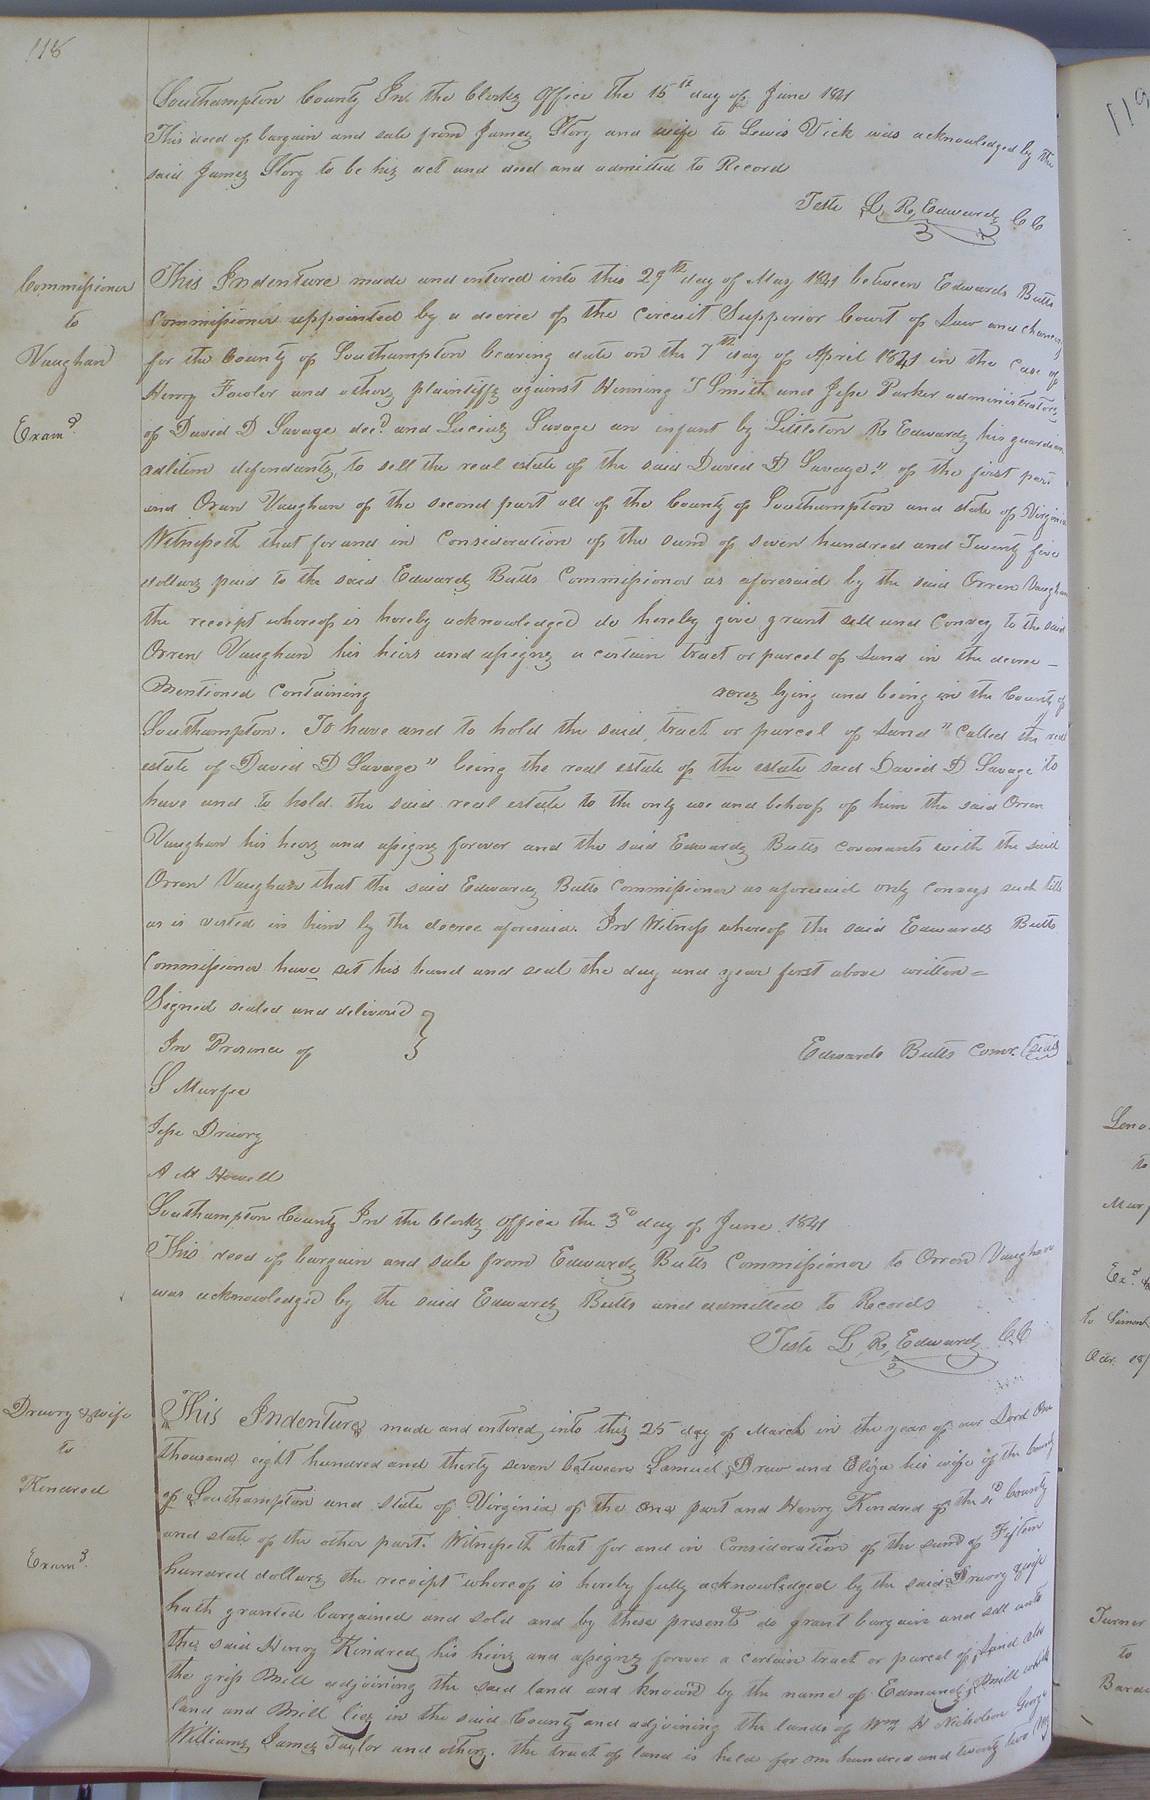 118
Southampton County In the Clerks Office the 15th day of June 1841
This deed of bargain and sale from James Story and wife to Lewis Vick was acknowledged by the
said James Story to be his act and deed and admitted to Record
Teste L. R. Edwards CC
Commissioner
to
Vaughan
Examd
This Indenture made and entered into this 29th day of May 1841 between Edwards Butts
Commissioner appointed by a decree of the Circuit Supperior Court of Law and chancery
for the County of Southampton bearing date on the 7th day of April 1841 in the case of
Henry Fowler and others plaintiffs against Henning T Smith and Jesse Parker administrators
of David D Savage decd and Lucius Savage an infant by Littleton R Edwards his guardian
adlitem defendants, to sell the real estate of the said David D Savage" of the first part
and Oran Vaughan of the second part all of the County of Southampton and state of Virginia
Witnesseth that for and in Consideration of the sum of seven hundred and Twenty five
dollars paid to the said Edwards Butts Commissioner as aforesaid by the said Orren Vaughan
the receipt whereof is hereby acknowledged do hereby give grant sell and Convey to the said
Orren Vaughan his heirs and assigns a certain tract or parcel of Land in the decree -
Mentioned Containing acres lying and being in the County of
Southampton. To have and to hold the said tract or parcel of Land "called the real
estate of David D Savage" being the real estate of the estate said David D Savage to
have and to hold the said real estate to the only use and behoof of him the said Orren
Vaughan his heirs and assigns forever and the said Edwards Butts Covenants with the said
Orren Vaughan that the said Edwards Butts Commissioner as aforesaid only conveys such title
as is vested in him by the decree aforesaid. In Witness whereof the said Edwards Butts
Commissioner have set his hand and seal the day and year first above written =
Signed sealed and delivered
In Presence of
Edwards Butts Comr. (seal)
S Murfee
Jesse Drewry
A M Howell
Southampton County In the Clerks Office the 3d day of June 1841
This deed of bargain and sale from Edwards Butts Commissioner to Orren Vaughan
was acknowledged by the said Edwards Butts and admitted to Records
Teste L. R. Edwards CC
Drewry & wife
to
Kindred
Examd.
This Indenture made and entered into this 25 day of March in the year of our Lord One
thousand eight hundred and thirty seven between Samuel Drew and Eliza his wife of the County
of Southampton and state of Virginia of the one part and Henry Kindred of the sd County
and state of the other part. Witnesseth that for and in Consideration of the sum of Fifteen
hundred dollars the receipt whereof is hereby fully acknowledged by the said Drewry & wife
hath granted bargained and sold and by these presents do grant bargain and sell unto
the said Henry Kindred his heirs and assigns forever a certain tract or parcel of Land also
the gris Mill adjoining the said land and known by the name of Edmunds Mill which
land and Mill lies in the said County and adjoining the lands of Wm H Nicholson George
Williams James Taylor and others. the tract of land is held for one hundred and twenty two
119
to
to Simon
Turner
to